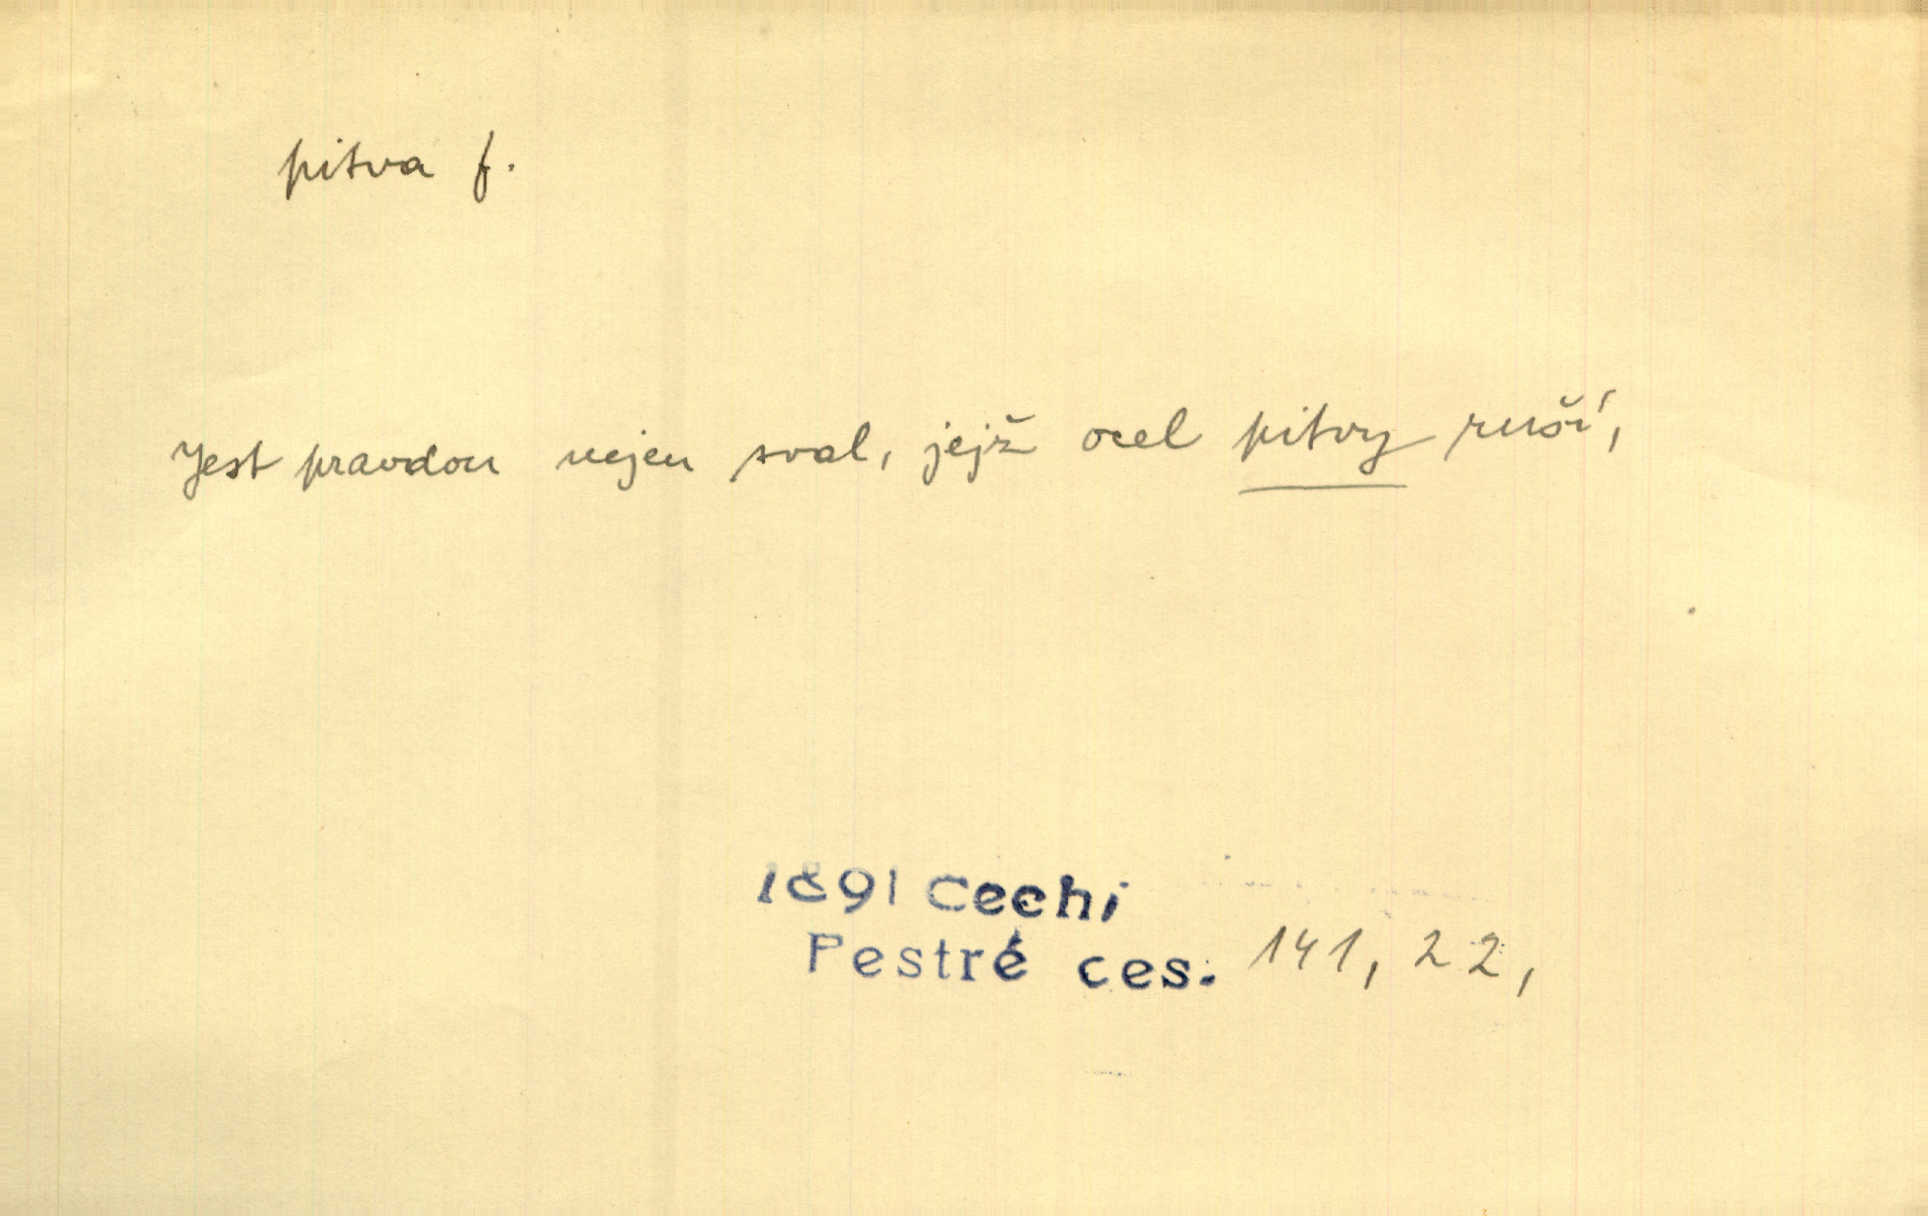 pitva f.
Jest pravdou nejen sval, jejž ocel pitvy ruší,
1891 Cechi
Pestré ces. 141, 22,